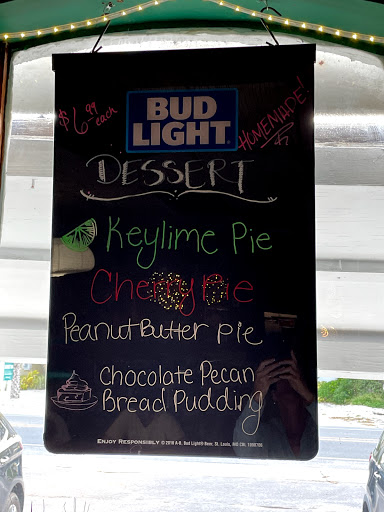 $6.99 each
BUD LIGHT
HOMEMADE!
DESSERT
Keylime Pie
Cherry Pie
Peanut Butter pie
Chocolate Pecan
Bread Pudding
ENJOY RESPONSIBLY © 2018 A-B, Bud Light® Beer, St. Louis, MO